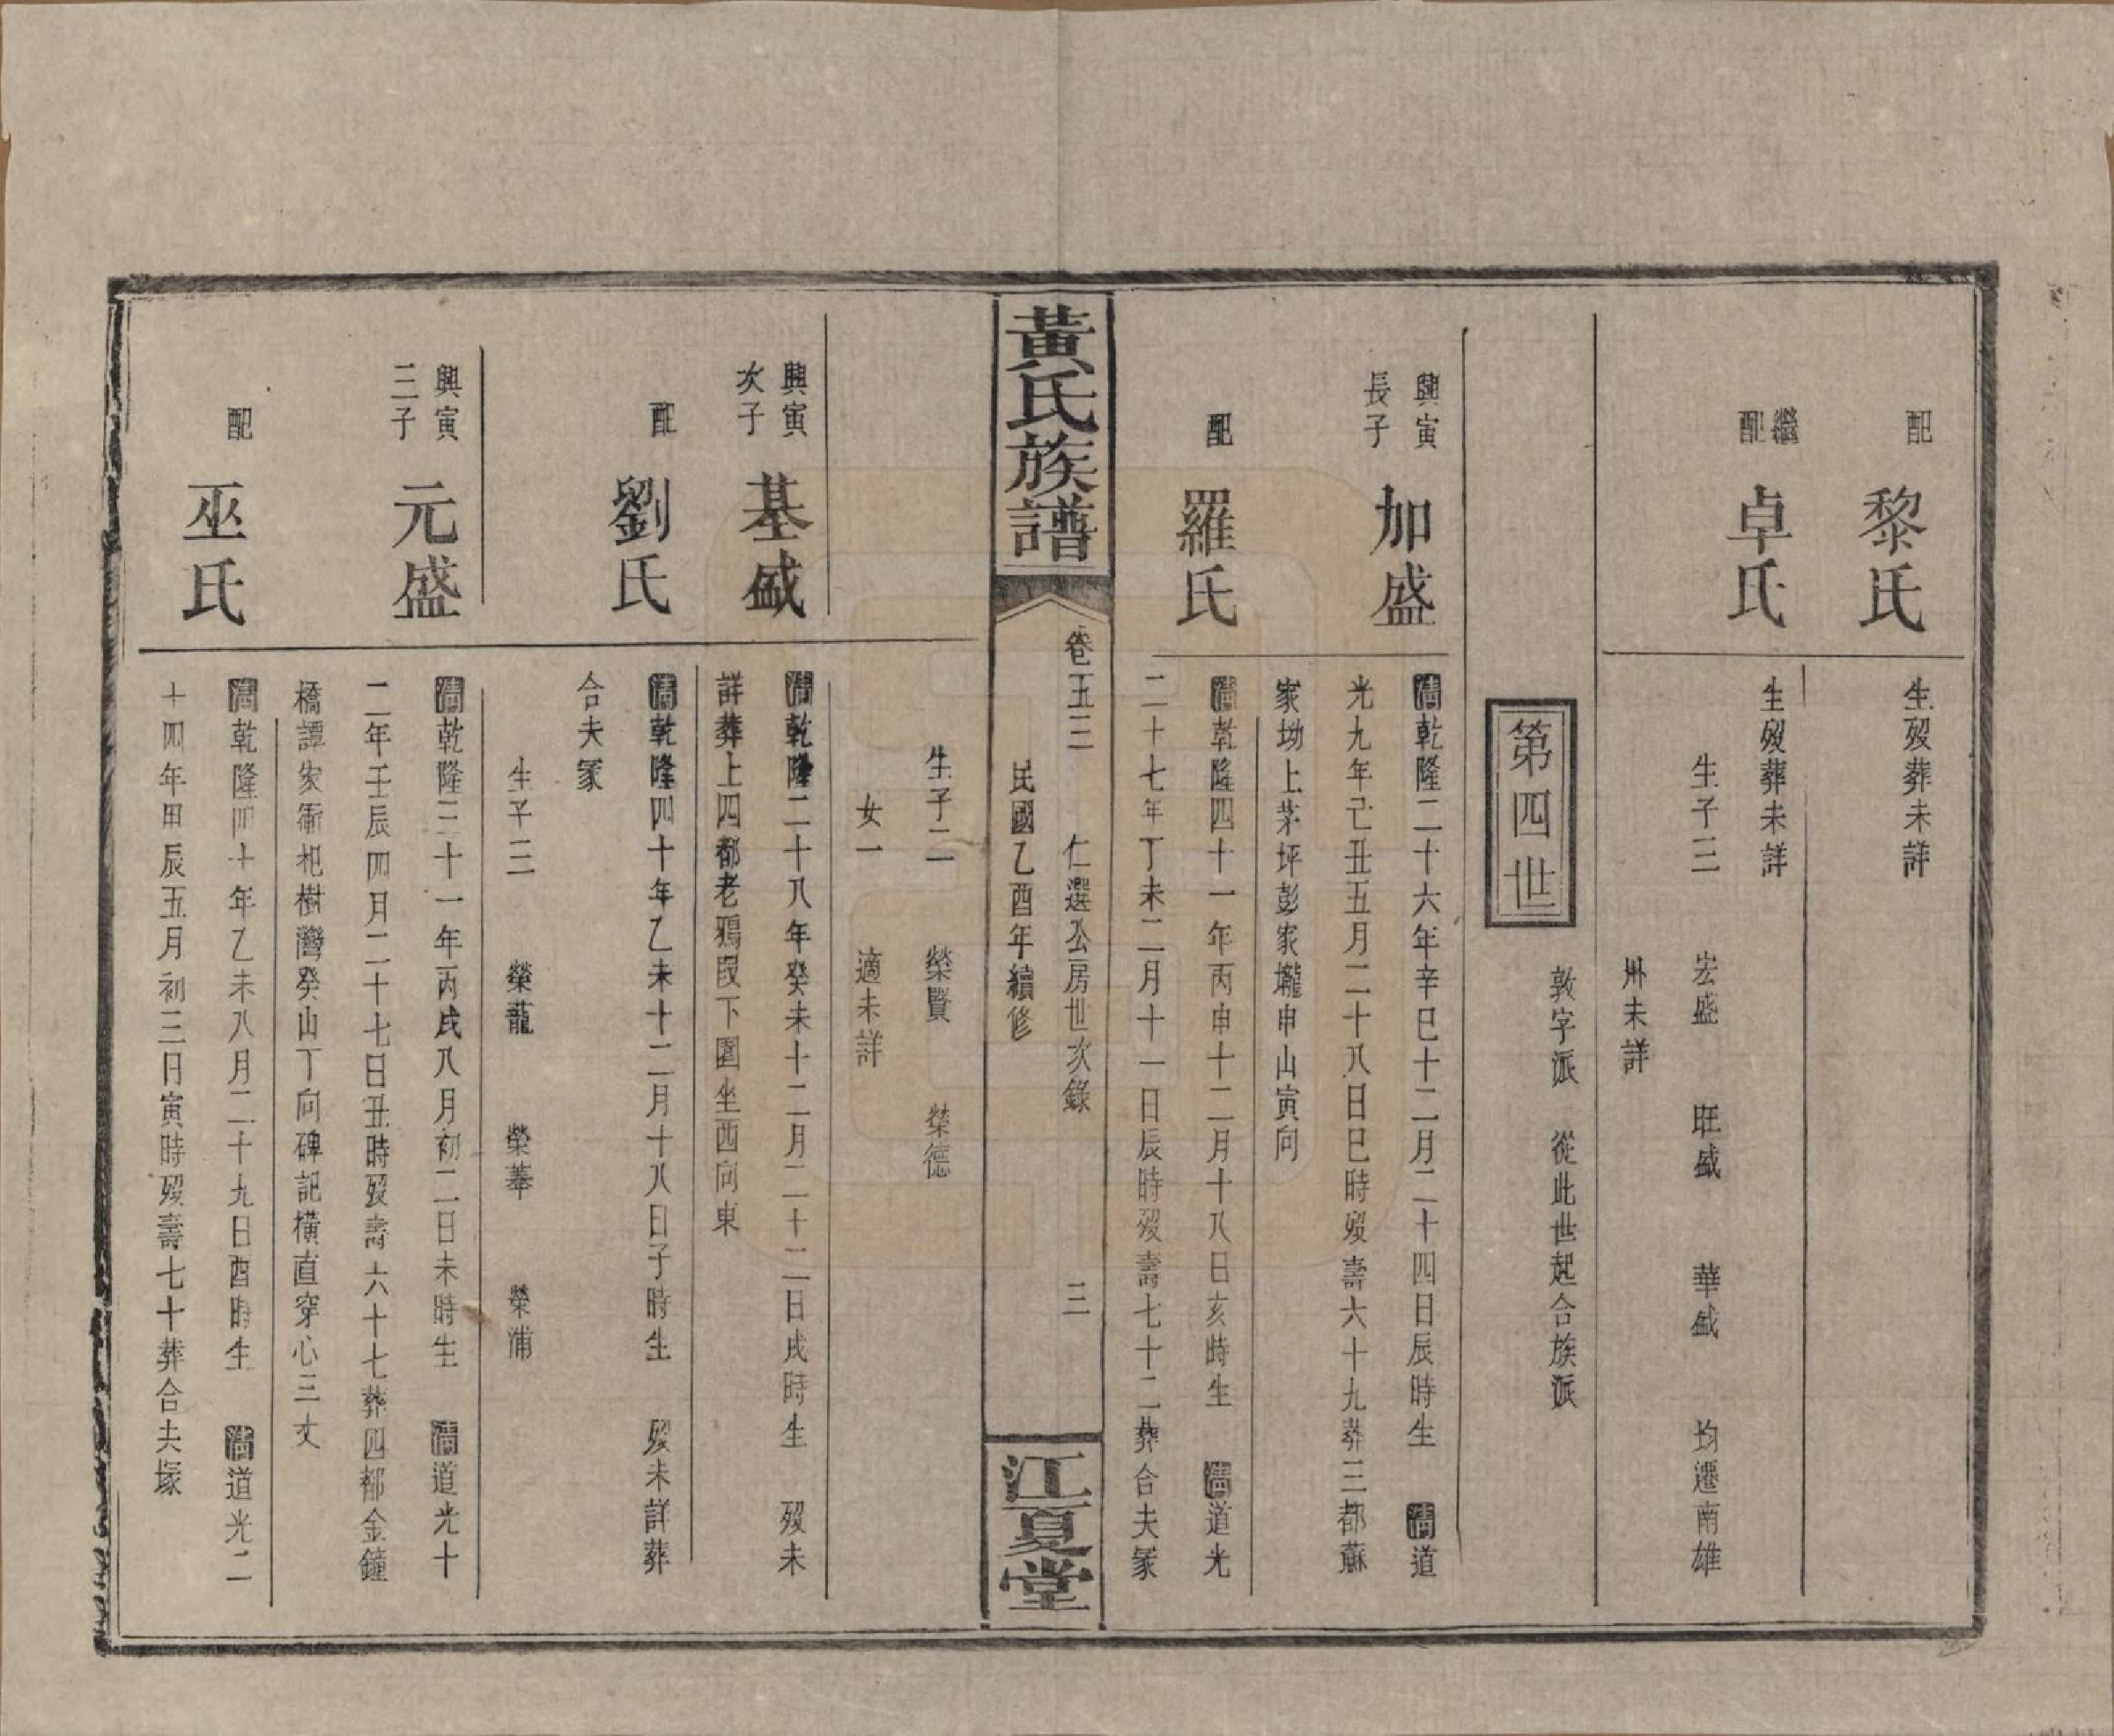 配
黎氏
生歿葬未詳
繼配
卓氏
生歿葬未詳
生子三 宏盛 旺盛 華盛 均遷南雄
州未詳
敦字派 從此世起合族派
第四世
興寅
長子
加盛
清乾隆二十六年辛巳十二月二十四日辰時生 清道
光九年己丑五月二十八日巳時歿壽六十九葬三都蘇
家坳上茅坪彭家壠申山寅向
配
羅氏
清乾隆四十一年丙申十二月十八日亥時生 清道光
二十七年丁未二月十一日辰時歿壽七十二葬合夫冢
黃氏族譜
卷五三 仁選公房世次錄 三
民國乙酉年續修
江夏堂
生子二 榮賢 榮德
女一 適未詳
興寅
次子
基盛
清乾隆二十八年癸未十二月二十二日戌時生 歿未
詳葬上四都老鴉叚下園坐西向東
配
劉氏
清乾隆四十年乙未十二月十八日子時生 歿未詳葬
合夫冢
生子三 榮蘢 榮菶 榮浦
興寅
三子
元盛
清乾隆三十一年丙戌八月初二日未時生 清道光十
二年壬辰四月二十七日丑時歿壽六十七葬四都金鐘
橋譚家衝杞樹灣癸山丁向碑記橫直穿心三丈
配
巫氏
清乾隆四十年乙未八月二十九日酉時生 清道光二
十四年甲辰五月初三日寅時歿壽七十葬合夫塚